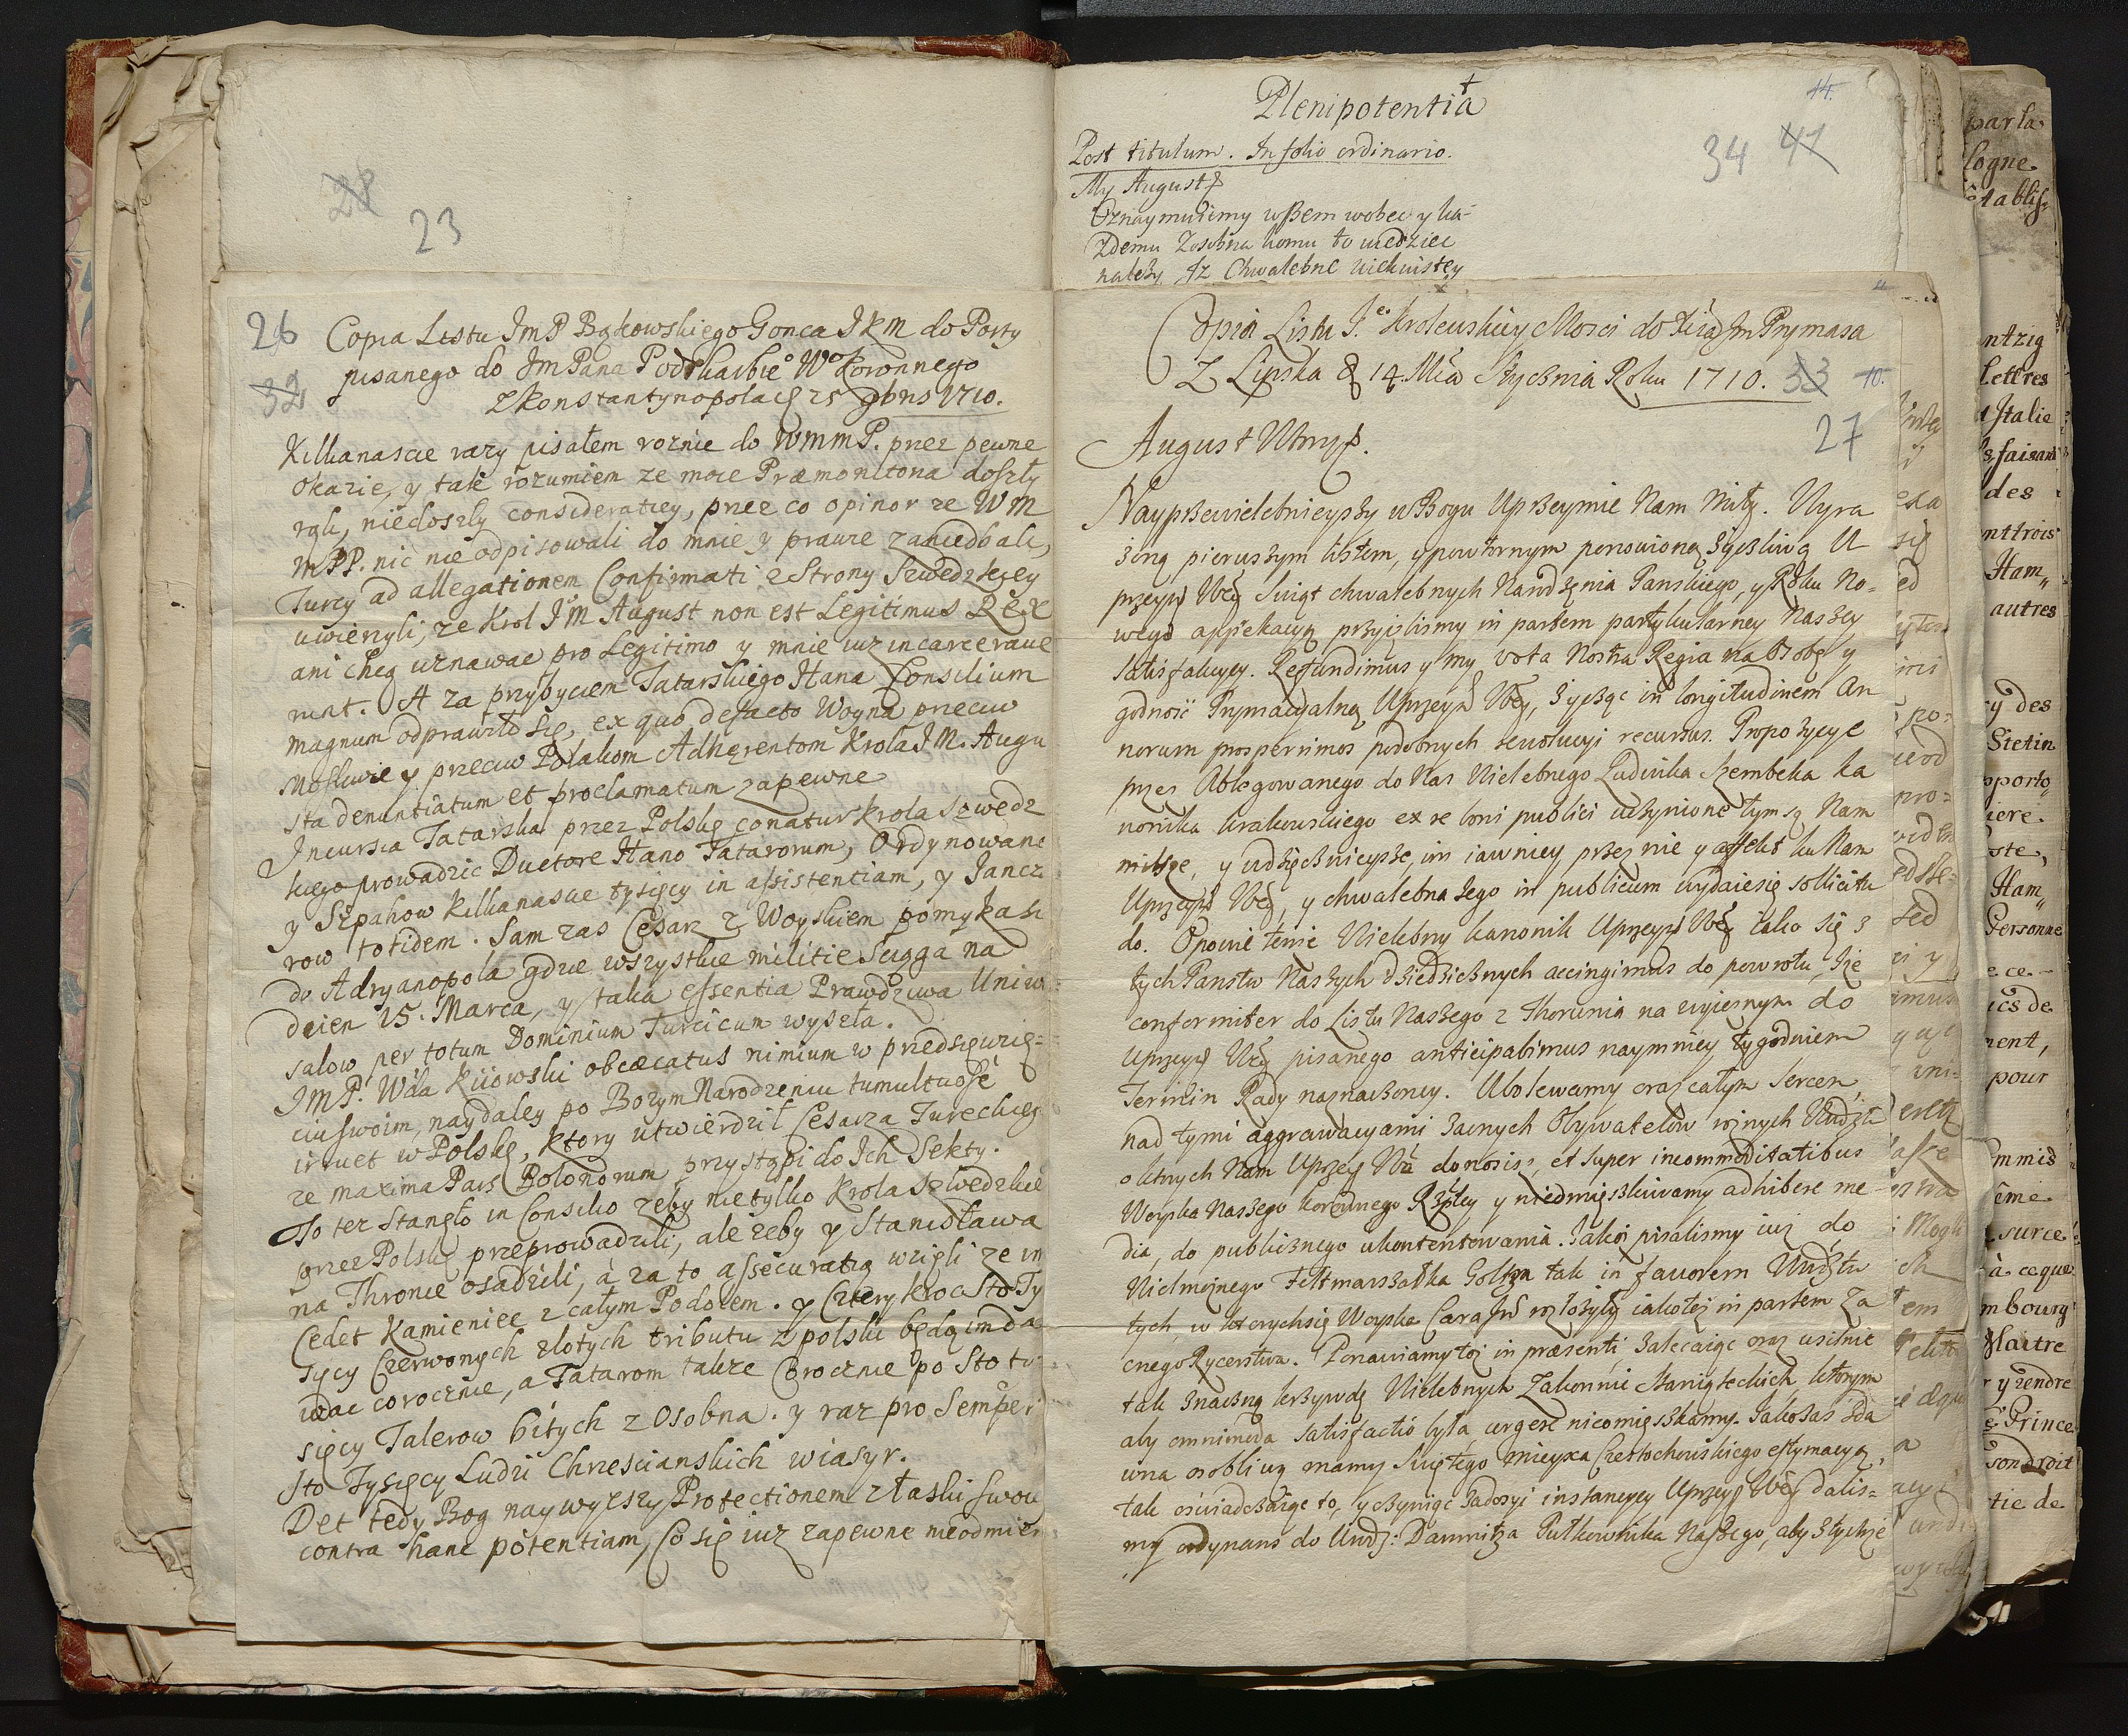 28
23
26
32
Copia Listu JmP Bąkowskiego Gonca JKM do Porty
pisanego do Jm Pana Podskarbie° W° Koronnego
z Konstantynopola 25 9bris 1710.
Kilkanascie razy pisałem roznie do WMMP. przez pewne
okazie, y tak rozumiem ze moie Præmonitoria doszły
rąk, niedoszły consideratiey, przez co opinor ze WM
MPP. nic nie odpisowali do mnie y prawie zaniedbali,
Turcy ad allegationem Confirmati z Strony Szwedzkiey
uwierzyli, ze Krol JM August non est Legitimus Rex
ani chcą uznawac pro Legitimo y mnie iuz incarcerave
runt. A za przybyciem Tatarskiego Hana Consilium
magnum odprawiło się, ex quo defacto Woyna przeciw
Moskwie y przeciw Polakom Adhærentom Krola JM. Augu
sta denuntiatum et proclamatum zapewne
Incursia Tatarska przez Polskę conatur Krola Szwedz
kiego prowadzic Ductore Hano Tatarorum, Ordynowane
y Szpahow kilkanascie tysięcy in assistentiam, y Jancza
row totidem. Sam zas Cesarz z Woyskiem pomyka się
do Adryanopola gdzie wszystkie militie sciąga na
dzien 15. Marca, y taka essentia Prawdziwa Uniwer
salow per totum Dominium Turcicum wyszła.
JMP. Wda Kiiowski obcæcatus nimium w przedsięwzię=
ciu swoim, naydaley po Bozym Narodzeniu tumultuose
irruet w Polskę, ktory utwierdził Cesarza Tureckiego
ze maxima Pars Polonorum przystąpi do Jch Sekty.
To tez Stanęło in Consilio zeby nie tylko Krola Szwedzkie
przez Polskę przeprowadzili, ale zeby y Stanisława
na Thronie osadzili, à za to assecuratią wzięli ze im
Cedet Kamieniec z całym Podolem. y Cztery kroc Sto Ty
sięcy Czerwonych złotych tributu z polski będą im da
wac corocznie, a Tatarom takze Corocznie po Sto ty
sięcy Talerow bitych z Osobna. y raz pro Semper
Sto Tysięcy Ludzi Chrzescianskich w iasyr.
Det tedy Bog naywyzszy Protectionem z łaski swoiey
contra hanc potentiam, Co się iuz zapewne nieodmieni
Plenipotentia
44.
34 41
Post titulum. In folio ordinario.
My August
Oznaymuiemy wszem wobec y ka-
zdemu Zosobna komu to wiedziec
nalezy Jz Chwalebne
Copia Listu J.eo Krolewskiey Mosci do Xcia Jm Prymasa
Z Lipska d 14. Mca Stycznia Roku 1710. 33 10.
27
August Wtory
Nayprzewielebnieyszy w Bogu Uprzeymie Nam Miły. Wyra
zoną pierwszym listem, y powtornym ponowioną zyczliwą U
przeym Wey Swiąt chwalebnych Narodzenia Panskiego, y Roku No=
wego apprekacyą przyięlismy in partem partykularney Naszey
satisfakcyey. Refundimus y my vota Nostra Regia na Osobę y
godnosć Prymacyalną Uprzeym Wey, zycząc in longitudinem An
norum prosperrimos podobnych rewolucyi recursus. Propozycye
przez Ablegowanego do Nas Wielebnego Ludwika Szembeka Ka
nonika Krakowskiego ex re boni publici uczynione tym są Nam
milsze, y wdzięcznieysze, im iawniey przez nie y affekt ku Nam
Uprzeym Wey, y chwalebna Jego in publicum wydaie się sollicitu
do. Opowie tenze Wielebny Kanonik Uprzeym Wey iako się z
tych Panstw Naszych dziedzicznych accingimus do powrotu, Jze
conformiter do Listu Naszego z Thorunia na
Uprzeym Wey pisanego anticipabimus naymniey tygodniem
Termin Rady naznaczoney. Ubolewamy oraz całym sercem
nad tymi aggrawacyami zacnych Obywatelow
o ktorych Nam Uprzeym Wa donosisz, et super incommoditatibus
Woyska Naszego Koronnego Rzptey y niedmięszkiwamy adhibere me
dia, do publicznego ukontentowania. Jakoz pisalismy iuz do
Wielmoznego Feltmarszałka Goltza tak in favorem
tych, w ktorych się Woyska Cara Jm rozłozyły iako tez in partem Za
cnego Rycerstwa. Ponawiamy toz in præsenti zalecaiąc oraz usilnie
tak znaczną krzywdę Wielebnych Zakonnic ktorym
aby omnimoda satisfactio była urgere nieomięszkamy. Jako zas
wna osobliwą mamy Swiętego mieysca Częstochowskiego estymacyą,
tak oswiadczaiąc to, y czyniąc zadosyc instancyey Uprzeym Wey dalis=
my ordynans do Urodz: Damnitza Pułkownika Naszego, aby
par la
logne
établis
ntzig
Lettres
Italie
faisant
des
nt trois
Ham"
autres
y des
Stetin
pporto"
iere.
ste,
Ham"
Personne
e ce-
ics de
ment,
pour
mmis
ême
surce
à ceque
mbourg
Maitre
r y rendre
Prince
tie de